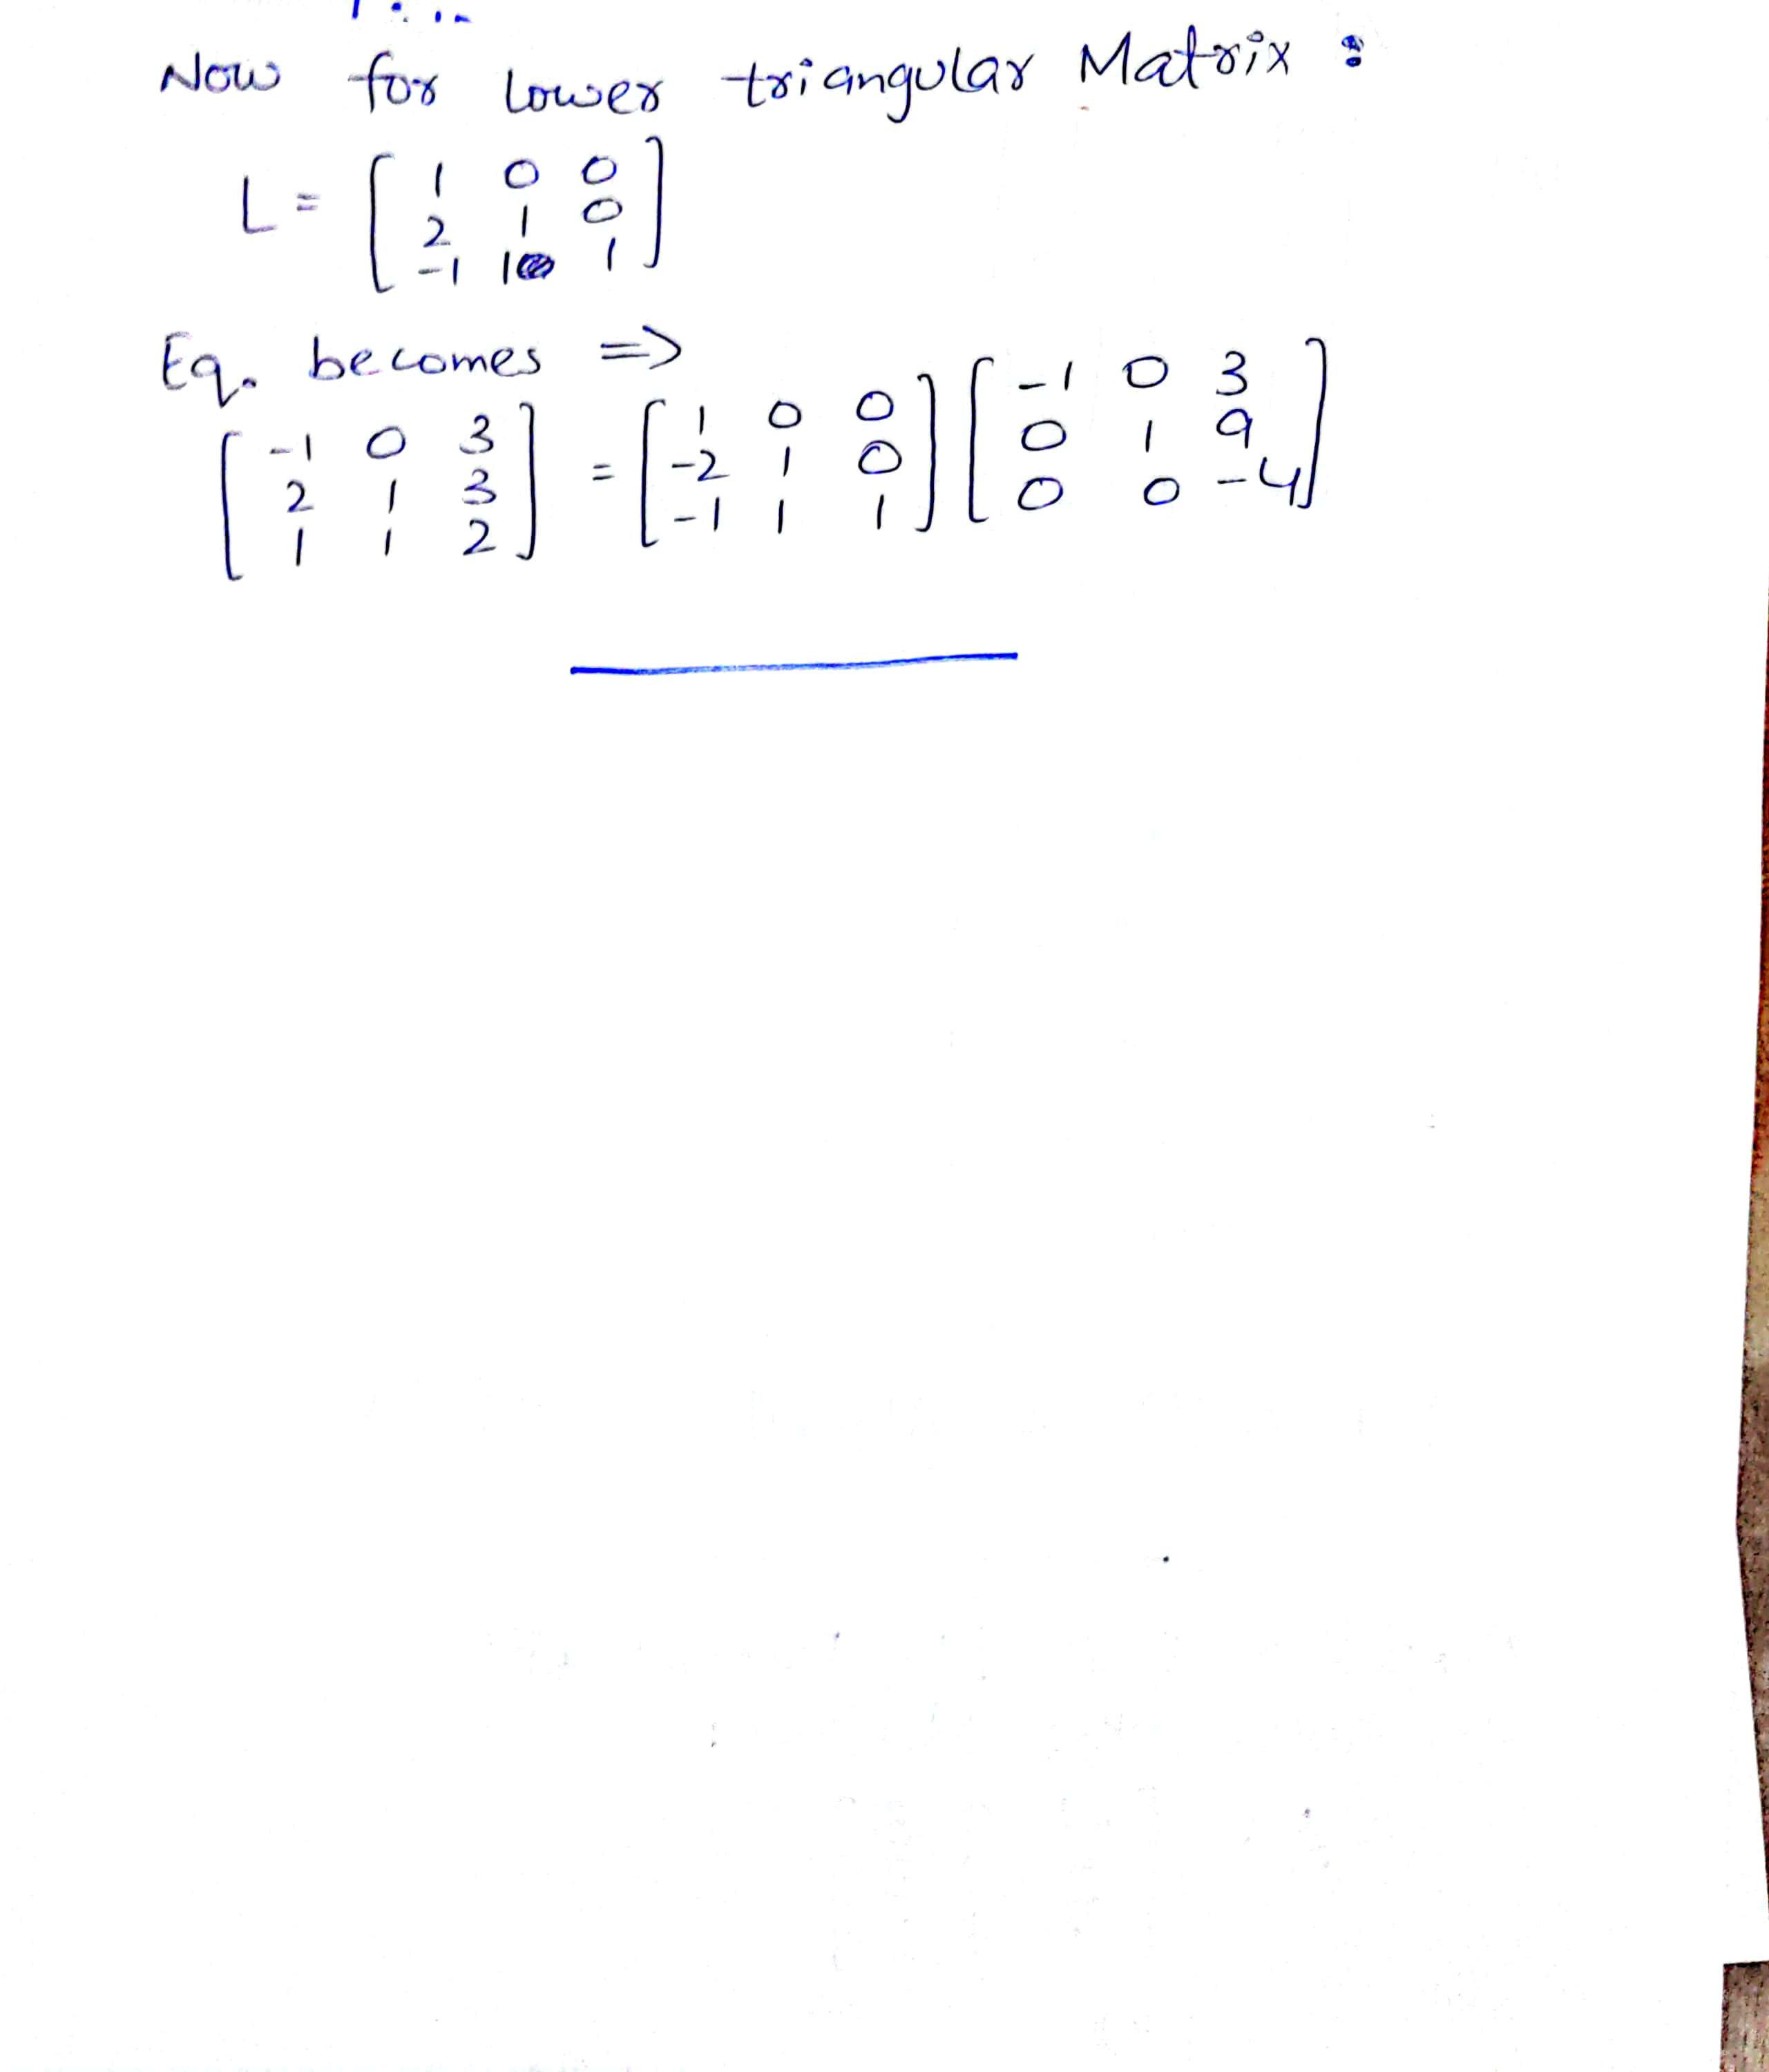 Now for lower triangular Matrix :
L = [ 1 0 0
2 1 0
-1 1 1 ]
Eq. becomes =>
[ -1 0 3
2 1 3
1 1 2 ] = [ 1 0 0
-2 1 0
-1 1 1 ] [ -1 0 3
0 1 9
0 0 -4 ]